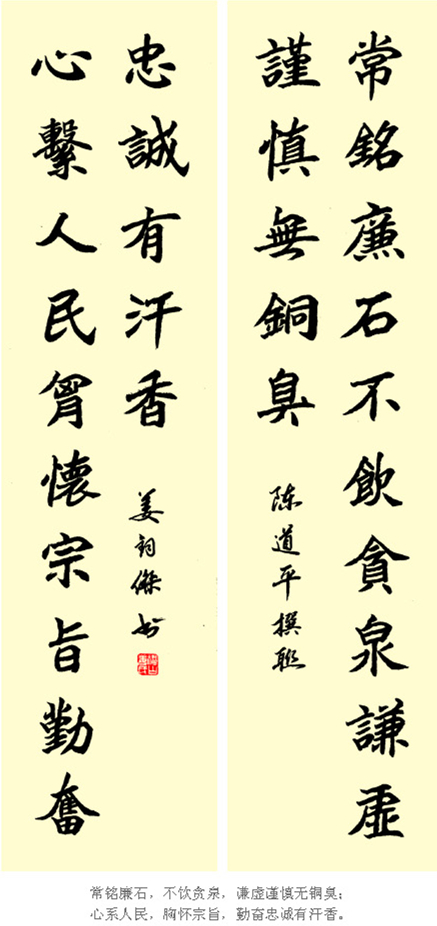 常銘廉石不飲貪泉謙虛
謹慎無銅臭
陈道平撰聯
心繫人民胷懷宗旨勤奮
忠誠有汗香
姜 傑书
常铭廉石，不饮贪泉，谦虚谨慎无铜臭；
心系人民，胸怀宗旨，勤奋忠诚有汗香。